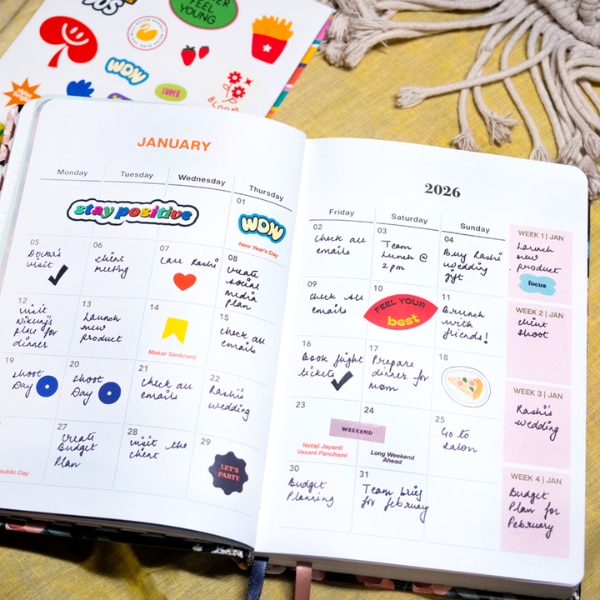 FEEL
YOUNG
WOW
SUPER
JANUARY
Monday
Tuesday
Wednesday
Thursday
stay positive
01
WOW
New Year's Day
05
Doctor's
visit
06
client
meeting
07
Call Rashi
08
Create
social
media
plan
12
visit
13
Launch
new
product
14
Makar Sankranti
15
check all
emails
19
shoot
Day
20
shoot
Day
21
check all
emails
22
Rashi's
wedding
public Day
27
Create
Budget
Plan
28
visit the
client
29
LET'S
PARTY
2026
Friday
Saturday
Sunday
02
check all
emails
03
Team
Lunch @
2pm
04
Buy Rashi
wedding
gift
WEEK 1 | JAN
Launch
new
product
focus
09
check all
emails
10
FEEL YOUR
best
11
Brunch
with
friends!
WEEK 2 | JAN
client
shoot
16
Book flight
tickets
17
Prepare
dinner for
mom
18
WEEK 3 | JAN
Rashi's
wedding
23
Netaji Jayanti
Vasant Panchami
WEEKEND
24
Long Weekend
Ahead
25
Go to
salon
WEEK 4 | JAN
Budget
Plan for
February
30
Budget
Planning
31
Team brief
for february